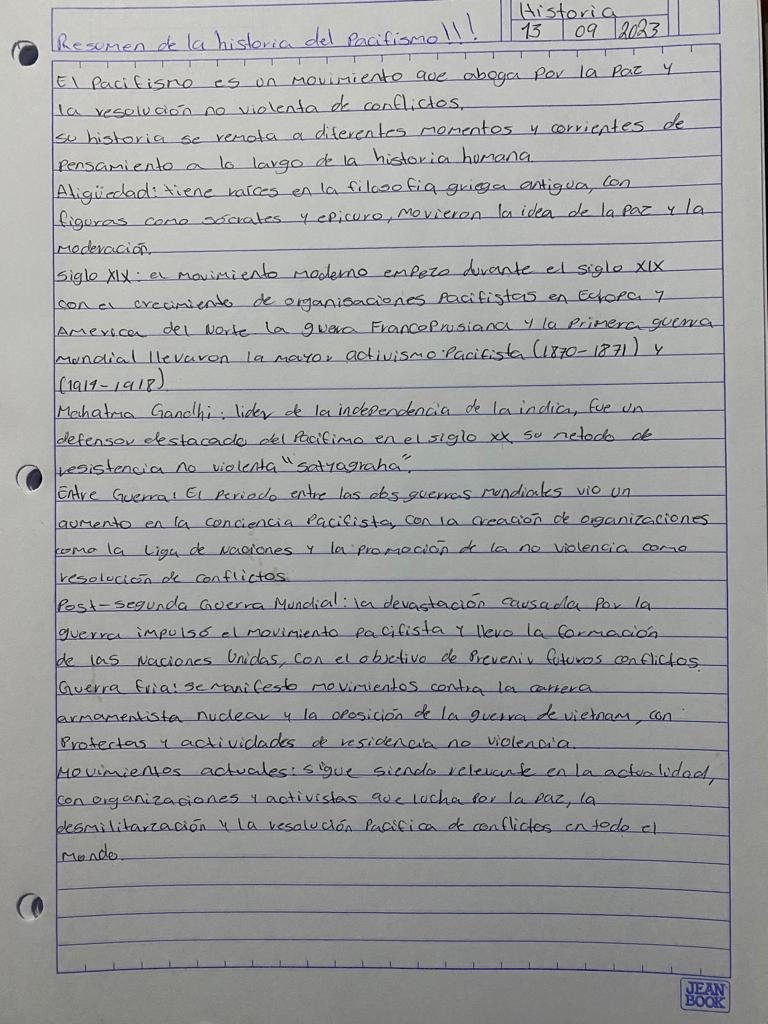 Historia
Resumen de la historia del Pacifismo!!!
13 09 2023
El Pacifismo es un movimiento que aboga por la Paz y
la resolución no violenta de conflictos.
su historia se remota a diferentes momentos y corrientes de
Pensamiento a lo largo de la historia humana.
Atigüedad: tiene raíces en la filosofia griega antigua, con
figuras como sócrates y epicuro, movieron la idea de la Paz y la
moderación.
Siglo XIX: el movimiento moderno empezo durante el siglo XIX
con el crecimiento de organisaciones Pacifistas en Europa y
America del Norte la guerra FrancoPrusiana y la Primera guerra
Mundial llevaron la mayor activismo Pacifista (1870-1871) y
(1914-1918)
Mahatma Gandhi: lider de la independencia de la indica, fue un
defensor destacado del Pacifimo en el siglo xx su metodo de
resistencia no violenta "satyagraha".
Entre Guerra: El Periodo entre las dos guerras mundiales vio un
aumento en la conciencia Pacifista, con la creación de organizaciones
como la Liga de Naciones y la promoción de la no violencia como
resolución de conflictos
Post-segunda Guerra Mundial: la devastación causada por la
guerra impulsó el movimiento pacifista y llevo la formación
de las Naciones Unidas, con el objetivo de Prevenir futuros conflictos.
Guerra fria: se manifesto movimientos contra la carrera
armamentista nuclear y la oposición de la guerra de vietnam, con
Protectas y actividades de residencia no violencia.
Movimientos actuales: sigue siendo relevante en la actualidad,
con organizaciones y activistas que lucha por la paz, la
desmilitarzación y la resolución Pacifica de conflictos en todo el
Mundo.
JEAN
BOOK